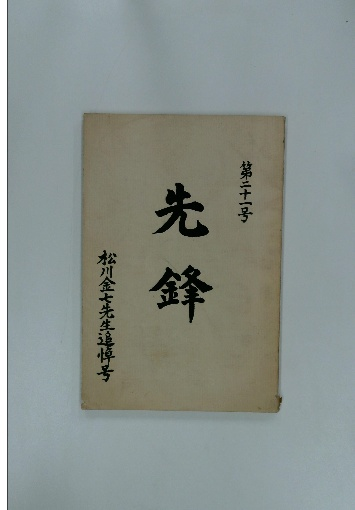 第二十一号
先鋒
松川金七先生追悼号